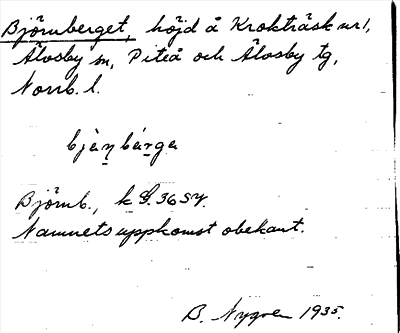 Björnberget, höjd å Krokträsk nr 1,
Älvsby sn, Piteå och Älvsby tg,
Norrb. l.
bjäṇbárga
Björnb., k G. 36 SV.
Namnets uppkomst obekant.
B. Nygren 1935.